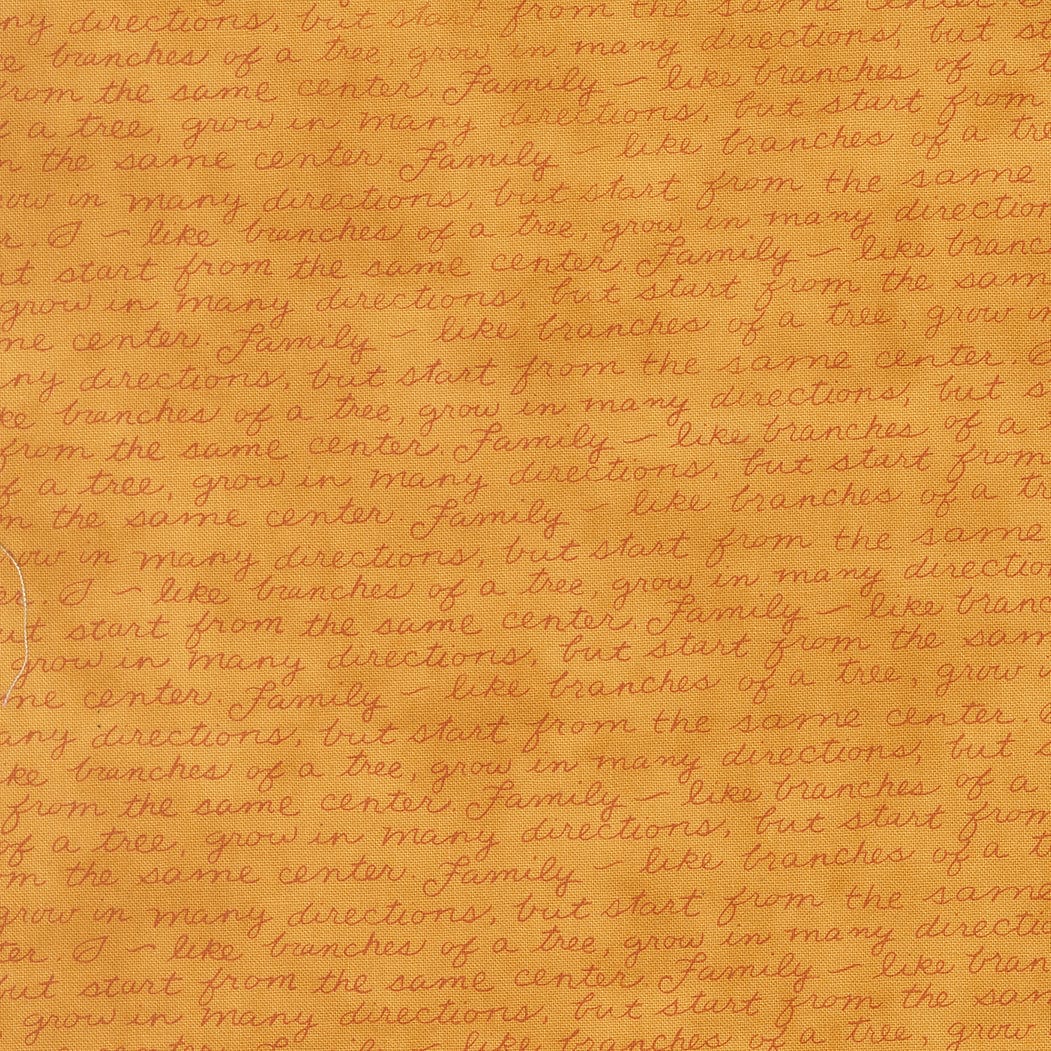 directions, but start from the same center.
branches of a tree, grow in many directions, but
from the same center. Family – like branches of a
a tree, grow in many directions, but start from
the same center. Family – like branches of a
in many directions, but start from the same
– like branches of a tree, grow in many
start from the same center. Family – like
grow in many directions, but start from the
center. Family – like branches of a tree, grow
directions, but start from the same center.
branches of a tree, grow in many directions, but
from the same center. Family – like branches of a
a tree, grow in many directions, but start from
the same center. Family – like branches of a
in many directions, but start from the same
– like branches of a tree, grow in many
start from the same center. Family – like
grow in many directions, but start from the
center. Family – like branches of a tree, grow
directions, but start from the same center.
branches of a tree, grow in many directions, but
from the same center. Family – like branches of a
of a tree, grow in many directions, but start from
the same center. Family – like branches of a
grow in many directions, but start from the same
– like branches of a tree, grow in many
but start from the same center. Family – like
grow in many directions, but start from the
like branches of a tree, grow